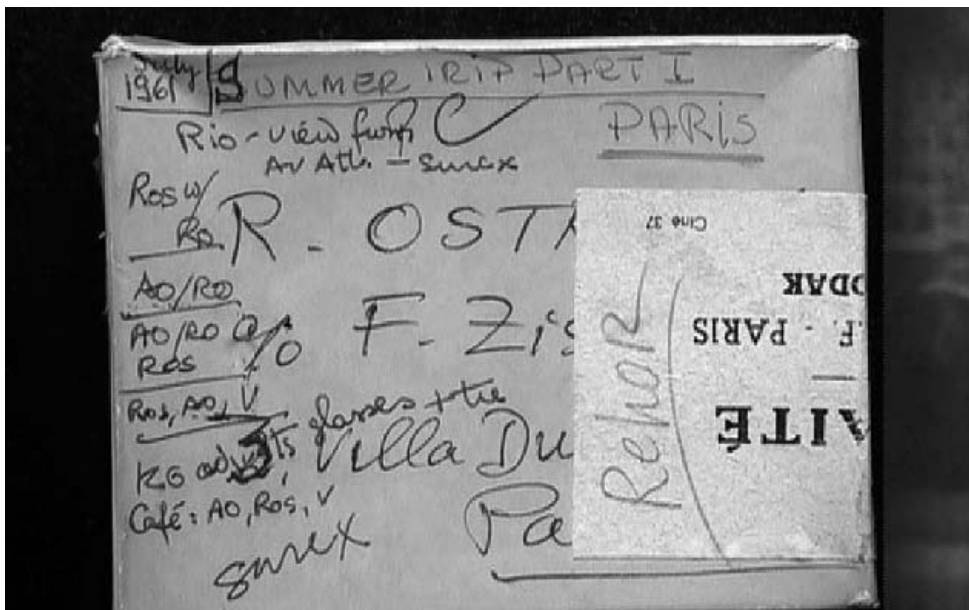 July
1961
SUMMER TRIP PART I
PARIS
Rio - view from
Av Atl. - surex
Ros w/
Ro
R. OSTR
AO/RO
AO/RO
ROS
% F. Zis
Ros, AO, V
KG adjusts glasses + tie
Villa Du
Café: AO, Ros, V
Pa
surex
Ciné 37
ODAK
.F. - PARIS
AITÉ